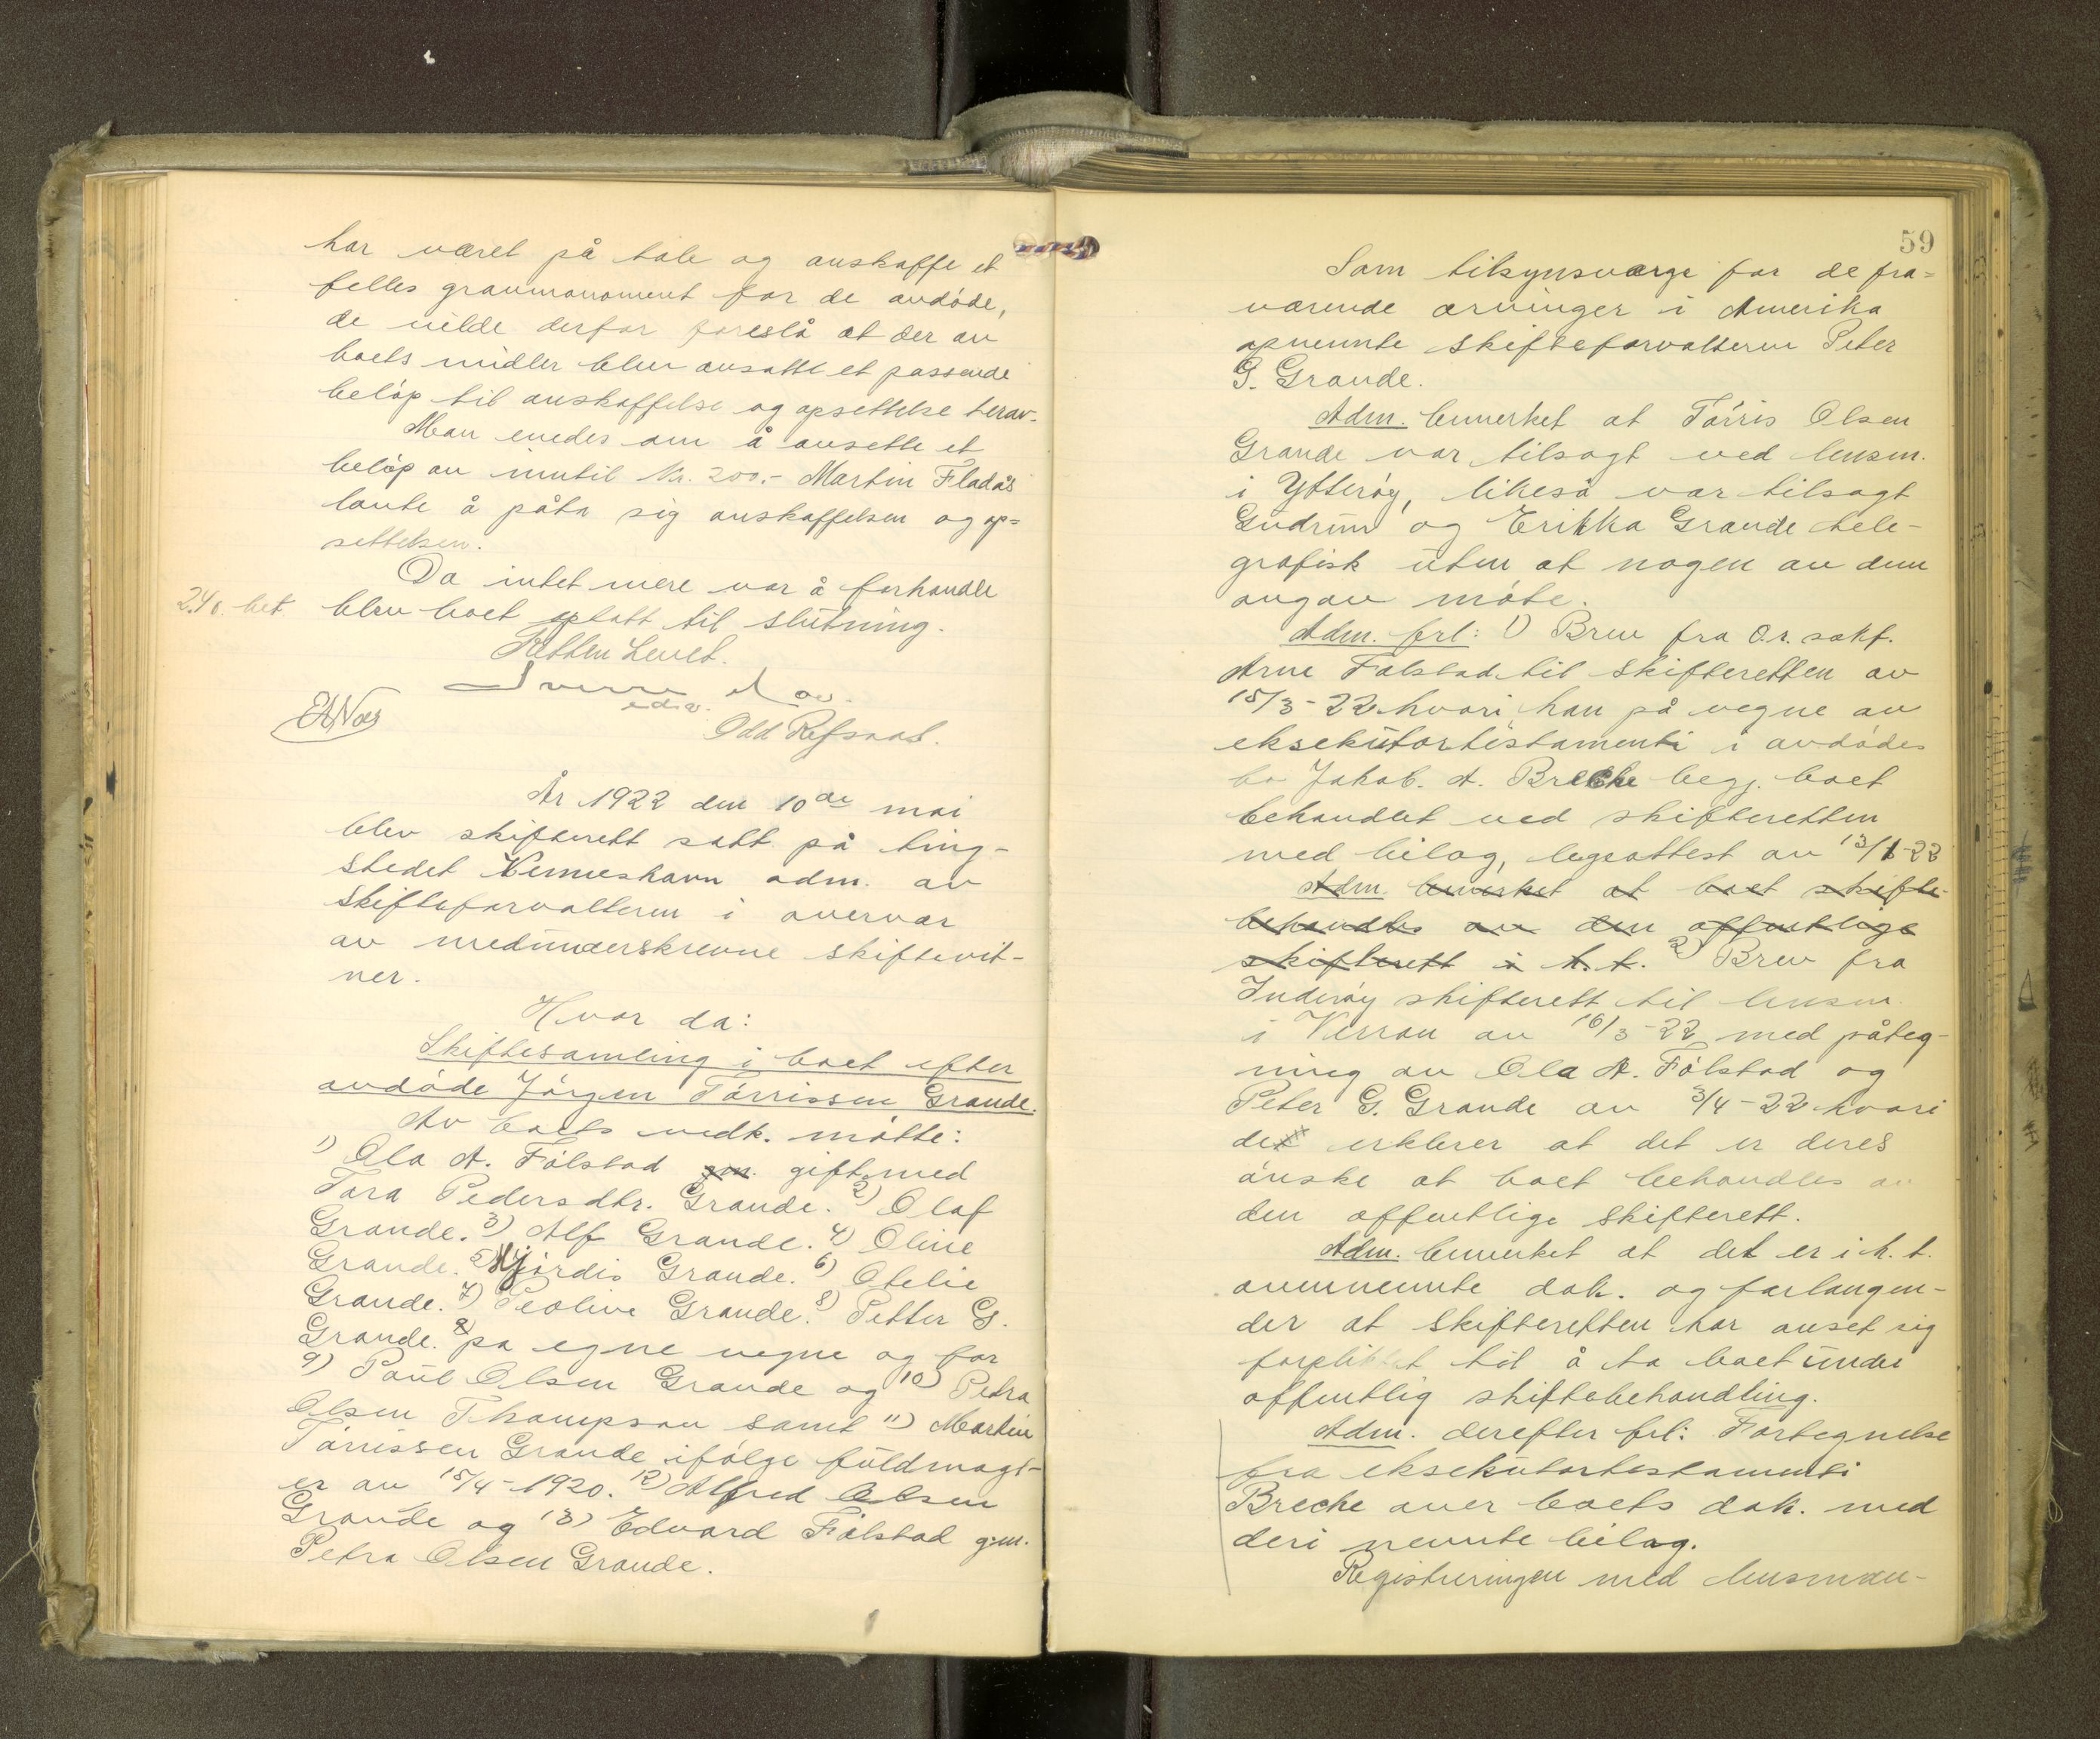 har været på tale og anskaffe et
felles gravmonoment for de avdöde,
de vilde derfor foreslå at der av
boets midler blev avsatt et passende
belöp til anskaffelse og opsettelse herav.
Man enedes om å avsette et
belöp av inntil Kr. 200.- Martin Fladås
lovte å påta sig anskaffelsen og op=
settelsen.
Da intet mere var å forhandle
2.40. bet. blev boet optatt til slutning.
Retten hevet.
Sverre
edsv.
Odd Refsnæs.
År 1922 den 10de mai
blev skifterett satt på ting-
stedet Venneshavn adm. av
skifteforvalteren i overvær
av medunderskrevne skiftevit-
ner.
Hvor da:
Skiftesamling i boet efter
avdöde Jörgen Törrissen Grande.
Av boets vedk. mötte:
1) Ola A. Fölstad gm. gift med
Tora Pedersdtr. Grande. 2) Olaf
Grande. 3) Alf Grande. 4) Oline
Grande. 5) Hjördis Grande. 6) Otelie
Grande. 7) Peoline Grande. 8) Petter G.
Grande. på egne vegne og for
9) Paul Olsen Grande og 10) Petra
Olsen Thompson samt 11) Martin
Törrissen Grande ifölge fuldmagt-
er av 15/4-1920. 12) Alfred Olsen
Grande og 13) Edvard Fölstad g.m.
Petra Olsen Grande.
59
Som tilsynsværge for de fra=
værende arvinger i Amerika
opnevnte skifteforvalteren Peter
G. Grande.
Adm. bemerket at Törris Olsen
Grande var tilsagt ved lensm.
i Ytteröy, likeså var tilsagt
Gudrun og Erikka Grande tele-
grafisk uten at nogen av dem
avgav möte.
Adm. frl: 1) Brev fra O.r. sakf.
Arne Falstad til skifteretten av
15/3-22 hvori han på vegne av
eksekutortestamenti i avdödes
bo Jakob. A. Brecke begj. boet
behandlet ved skifteretten
med bilag, legeattest av 13/1-22
Adm. bemerket at boet skifte-
behandles av den offentlige
skifterett i h.t. 2) Brev fra
Inderöy skifterett til lensm.
i Verran av 16/3-22 med påteg-
ning av Ola A. Fölstad og
Peter G. Grande av 3/4-22 hvori
de erklerer at det er deres
önske at boet behandles av
den offentlige skifterett.
Adm. bemerket at det er i h.t.
ovennevnte dok. og forlangen-
der at skifteretten har anset sig
forpliktet til å ta boet under
offentlig skiftebehandling.
Adm. derefter frl: Fortegnelse
fra eksekutortestamenti
Brecke over boets dok. med
deri nevnte bilag.
Registreringen med lensman-